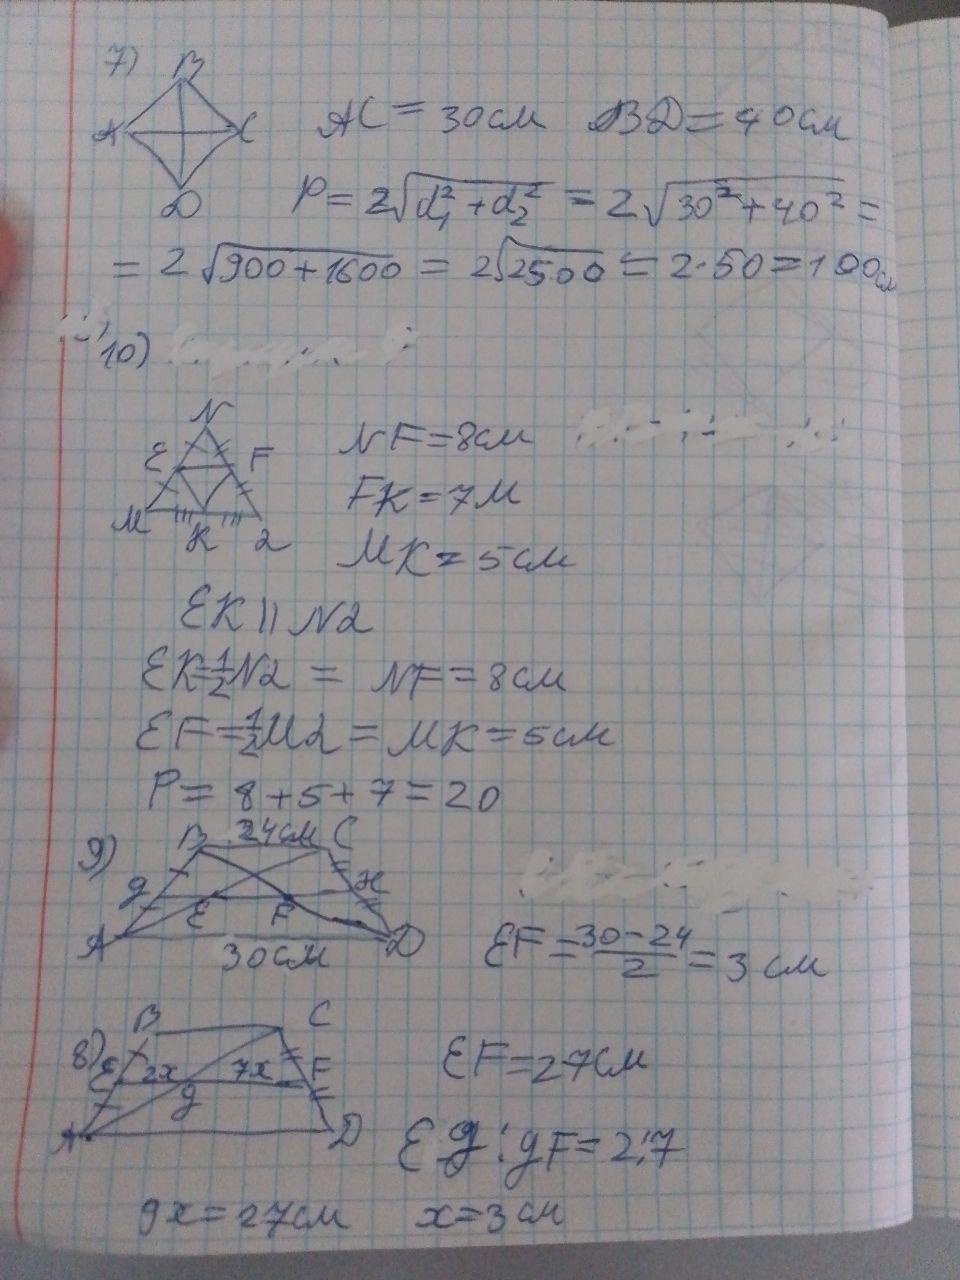 7)
B
A C
D
AC = 30см BD = 40см
P = 2√d₁² + d₂² = 2√30² + 40² =
= 2√900 + 1600 = 2√2500 = 2·50 = 100см
10)
N
E F
M K 2
NF = 8см
FK = 7м
MK = 5см
EK || N2
EK = 1/2 N2 = NF = 8см
EF = 1/2 M2 = MK = 5см
P = 8 + 5 + 7 = 20
9)
B 24см C
g E F H
A 30см D
EF = (30 - 24)/2 = 3 см
8)
B C
E 2x 7x F
g
A D
EF = 27см
Eg : gF = 2:7
9x = 27см x = 3см